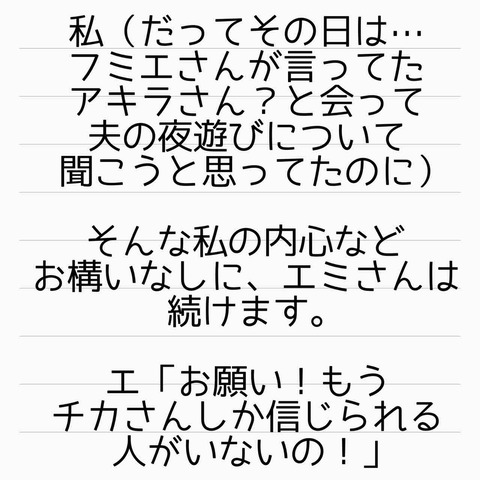 私（だってその日は…
フミエさんが言ってた
アキラさん？と会って
夫の夜遊びについて
聞こうと思ってたのに）
そんな私の内心など
お構いなしに、エミさんは
続けます。
エ「お願い！もう
チカさんしか信じられる
人がいないの！」